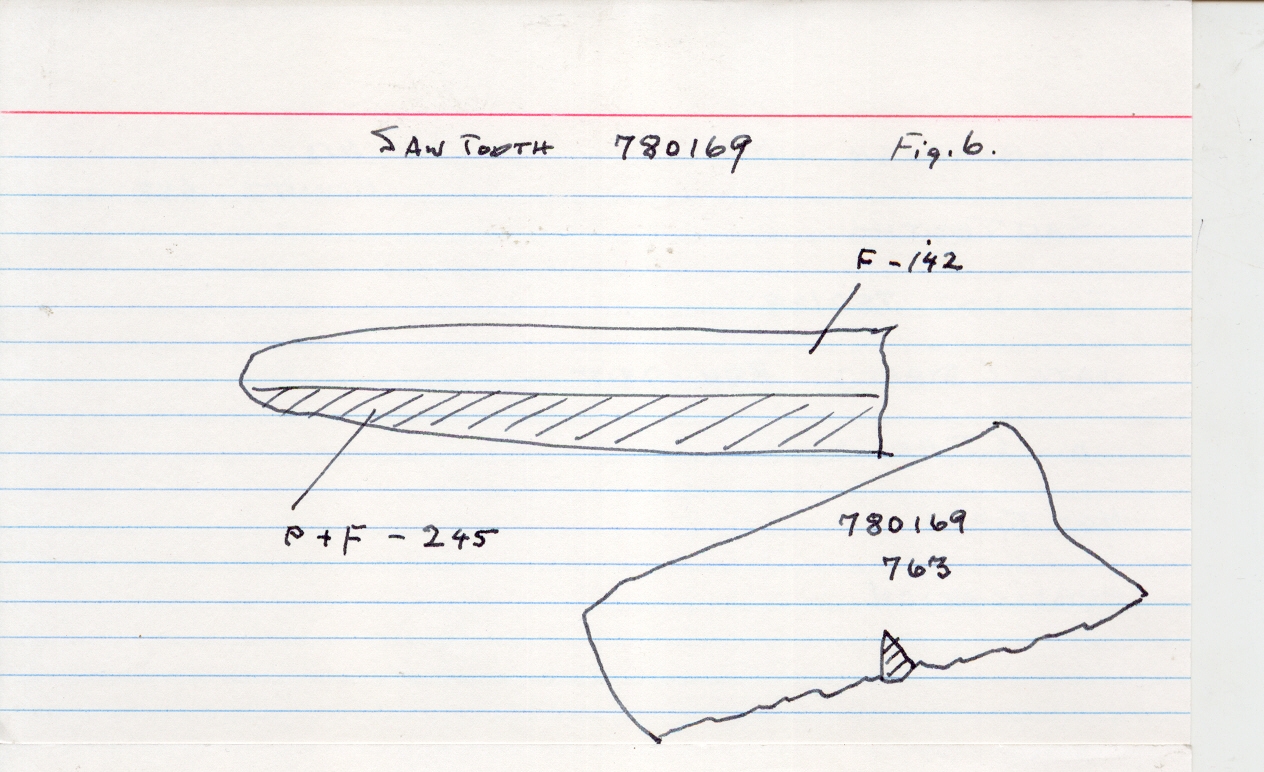 SAW TOOTH 780169 Fig. 6.
F - 142
P + F - 245
780169
763